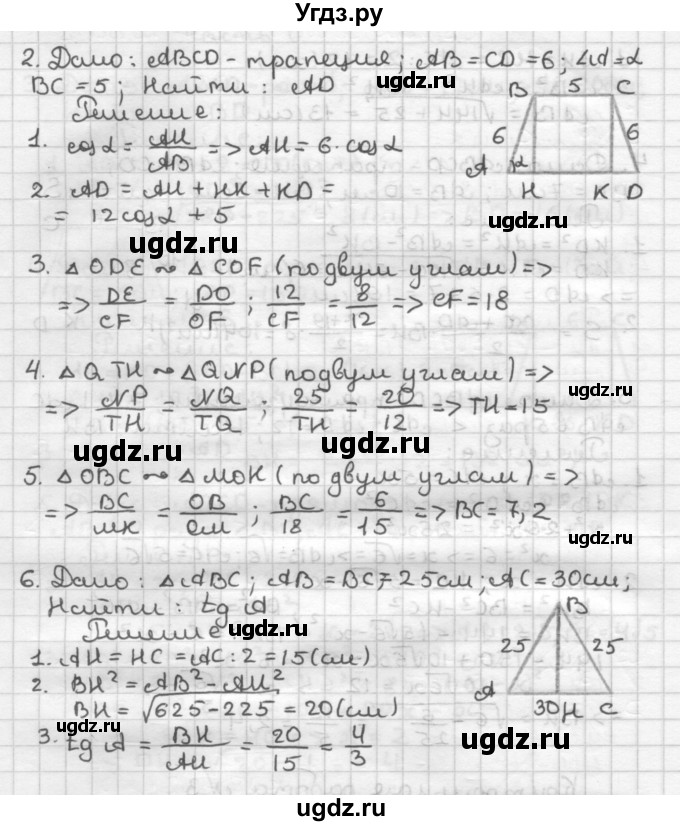 Угдз.ру
2. Дано: ABCD - трапеция; AB = CD = 6; ∠A = α
BC = 5; Найти: AD
ugdz.ru
Решение:
B 5 C
6 6
A α H K D
1. cos α = AH/AB => AH = 6·cos α
2. AD = AH + HK + KD =
= 12cos α + 5
ugdz.ru
ugdz.ru
3. △ODE ~ △COF (по двум углам) =>
=> DE/CF = DO/OF ; 12/CF = 8/12 => CF = 18
ugdz.ru
4. △QTH ~ △QNP (по двум углам) =>
=> NP/TH = NQ/TQ ; 25/TH = 20/12 => TH = 15
ugdz.ru
ugdz.ru
5. △OBC ~ △MOK (по двум углам) =>
=> BC/MK = OB/OM ; BC/18 = 6/15 => BC = 7,2
ugdz.ru
6. Дано: △ABC; AB = BC = 25см; AC = 30см;
Найти: tg A
ugdz.ru
Решение:
B
25 25
A 30 H C
1. AH = HC = AC : 2 = 15(см)
2. BH² = AB² - AH²
BH = √625-225 = 20(см)
ugdz.ru
3. tg A = BH/AH = 20/15 = 4/3
ugdz.ru
ugdz.ru
ugdz.ru